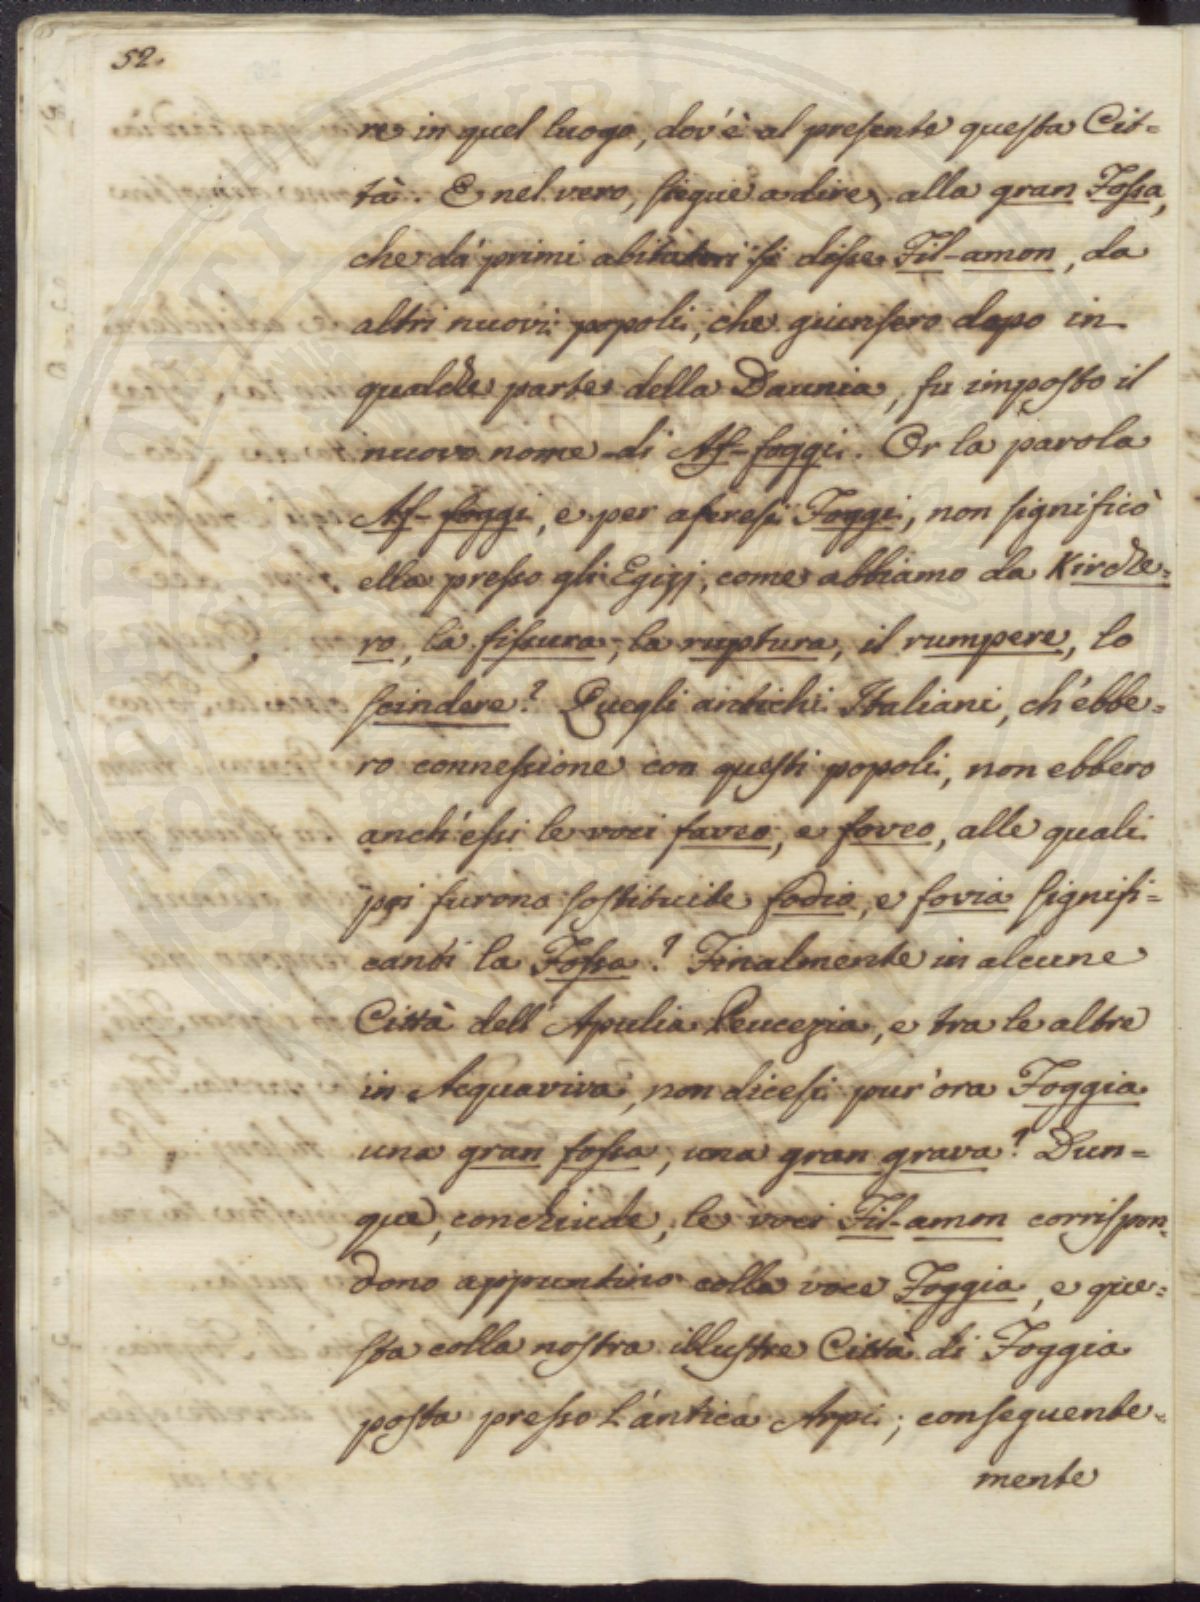 52.
re in quel luogo, dov'è al presente questa Cit=
tà. E nel vero, siegue a dire, alla gran Fossa,
che da' primi abitatori si disse Fil-amon, da
altri nuovi popoli, che giunsero dopo in
qualche parte della Daunia, fu imposto il
nuovo nome di Af-foggi. Or la parola
Af-foggi, e per aferesi Foggi, non significò
ella presso gli Egizj, come abbiamo da Kirche=
ro, la fissura, la ruptura, il rumpere, lo
scindere? Quegli antichi Italiani, ch'ebbe=
ro connessione con questi popoli, non ebbero
anch'essi le voci faveo, e foveo, alle quali
poi furono sostituite fodio, e fovia signifi=
canti la Fossa? Finalmente in alcune
Città dell'Apulia Peucezia, e tra le altre
in Acquaviva, non dicesi pur'ora Foggia
una gran fossa, una gran grava? Dun=
que, conchiude, le voci Fil-amon corrispon=
dono appuntino colla voce Foggia, e que=
sta colla nostra illustre Città di Foggia
posta presso l'antica Arpi; conseguente=
mente